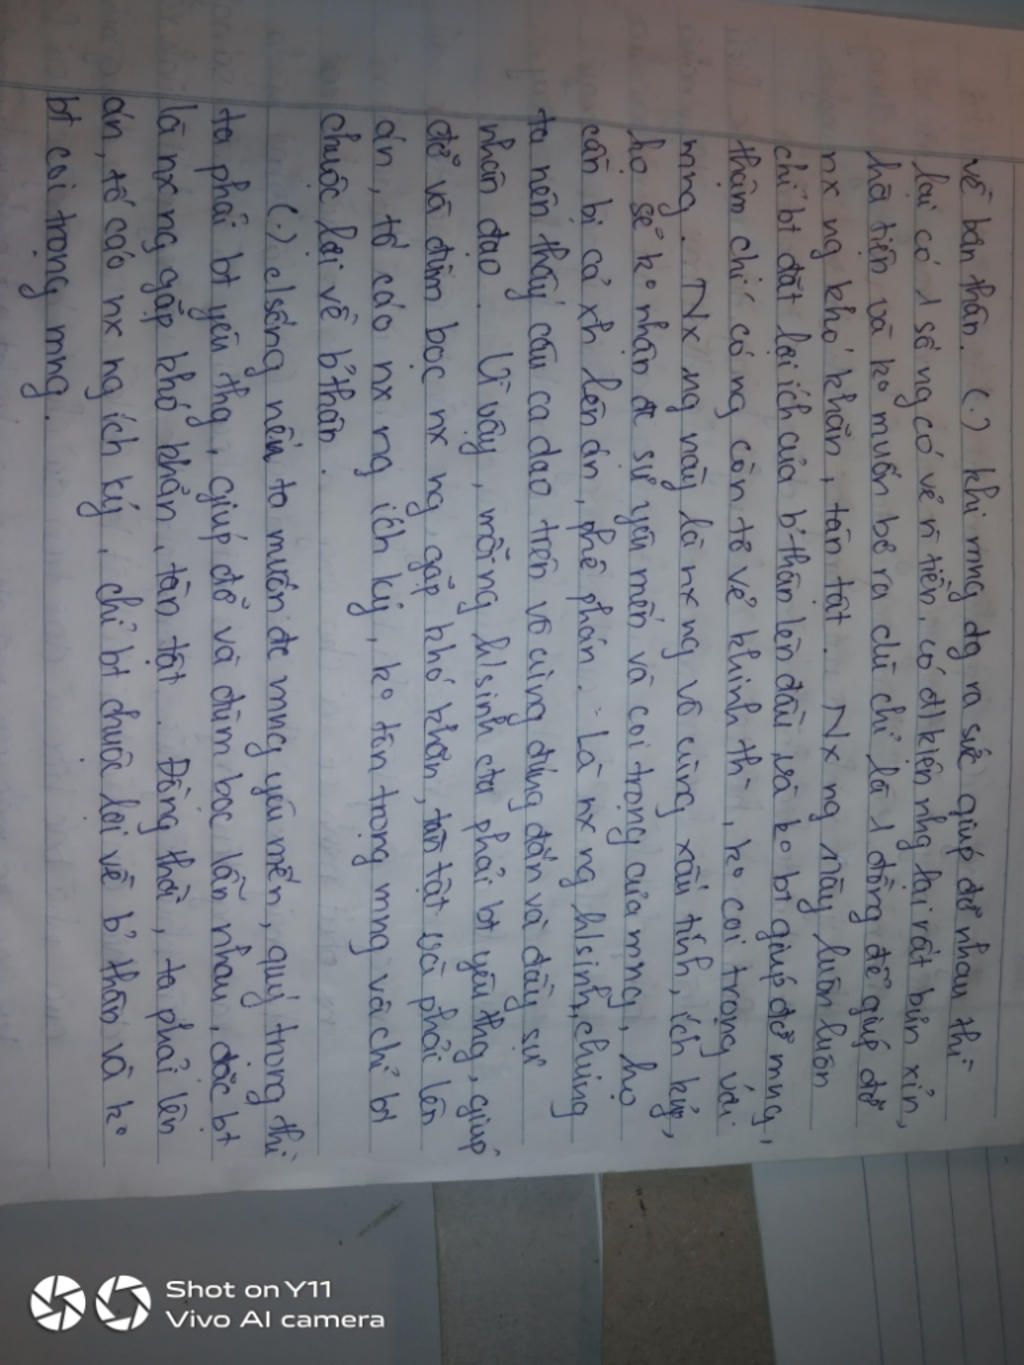 về bản thân. (.) khi mng dg ra sức giúp đỡ nhau thì
lại có 1 số ng có vẻ n tiền, có đ/kiện nhg lại rất bủn xỉn,
hà tiện và ko muốn bỏ ra dù chỉ là 1 đồng để giúp đỡ
nx ng khó khăn, tàn tật. Nx ng này luôn luôn
chỉ bt đặt lợi ích của b' thân lên đầu và ko bt giúp đỡ mng,
thậm chí có ng còn tỏ vẻ khinh thì, ko coi trọng với
mng. Nx ng này là nx ng vô cùng xấu tính, ích kỷ,
họ sẽ ko nhận đc sự yêu mến và coi trọng của mng, họ
cần bị cả xh lên án, phê phán. Là nx ng h/sinh, chúng
ta nên thấy câu ca dao trên vô cùng đúng đắn và đầy sự
nhân đạo. Vì vậy, mỗi ng h/sinh cta phải bt yêu thg, giúp
đỡ và đùm bọc nx ng gặp khó khăn, tàn tật và phải lên
án, tố cáo nx ng ích kỷ, ko tôn trọng mng và chỉ bt
chuộc lợi về b' thân.
(.) c/sống nếu ta muốn đc mng yêu mến, quý trong thì
ta phải bt yêu thg, giúp đỡ và đùm bọc lẫn nhau, đặc bt
là nx ng gặp khó khăn, tàn tật. Đồng thời, ta phải lên
án, tố cáo nx ng ích kỷ, chỉ bt chuộc lợi về b' thân và ko
bt coi trọng mng.
Shot on Y11
Vivo AI camera